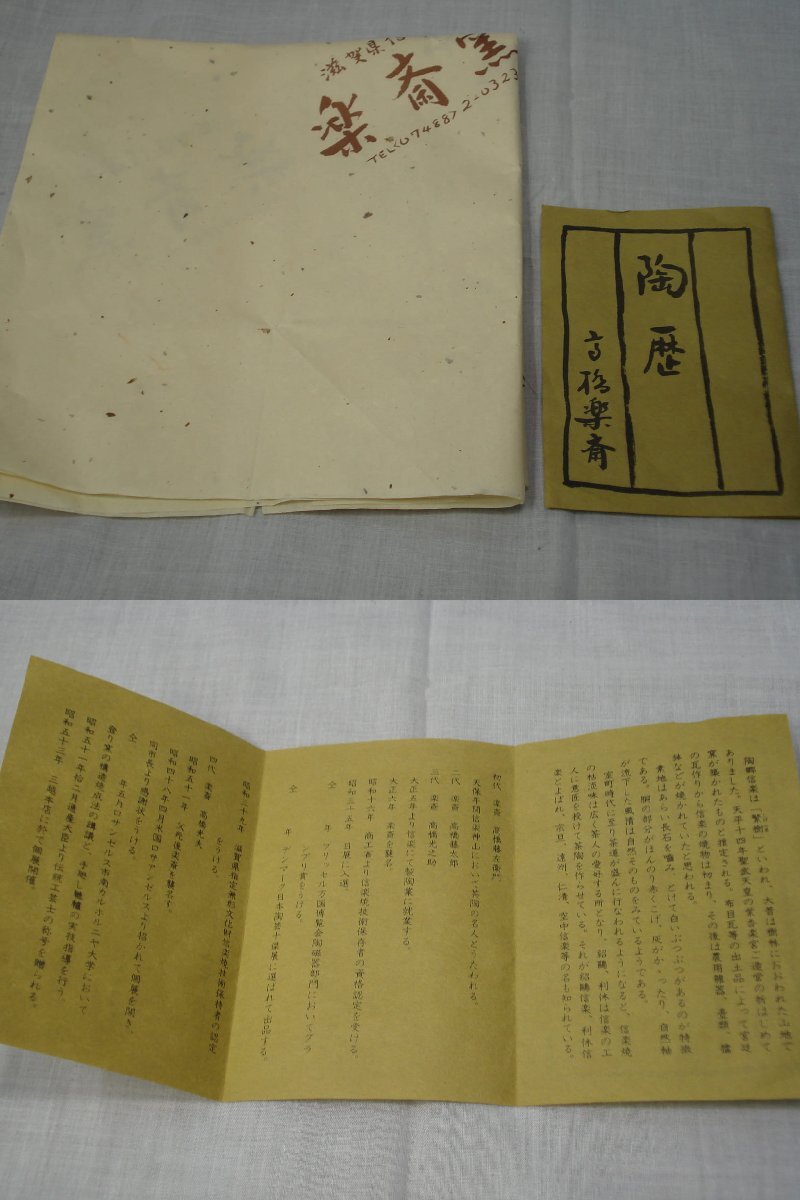 滋賀県信
楽斎窯
TEL<07488>2-0323
陶歴
高橋楽斎
陶郷信楽は「繁樹」といわれ、大昔は樹林におおわれた山地で
ありました。天平十四年聖武天皇の紫香楽宮ご造営の折はじめて
窯が築かれたものと推定される。布目瓦等の出土品によって宮廷
の瓦作りから信楽の焼物は初まり、その後は農用雑器、壷類、擂
鉢などが焼かれていたと思われる。
素地はあらい長石を噛み、とけて白いぶつぶつがあるのが特徴
である。胴の部分がほんのり赤くこげ、灰がかゝったり、自然釉
が流下した風情は自然そのものをみているようである。
室町時代に至り茶道が盛んに行なわれるようになると、信楽焼
の枯淡味は広く茶人の愛好する所となり、紹鴎、利休は信楽の工
人に意匠を授けて茶陶を作らせている。それが紹鴎信楽、利休信
楽とよばれ、宗旦、遠州、仁清、空中信楽等の名も知られている。
初代 楽斎 高橋藤左衛門
天保年間信楽神山において茶陶の名人とうたわれる。
二代 楽斎 高橋藤太郎
三代 楽斎 高橋光之助
大正五年より信楽にて製陶業に就業する。
大正六年 楽斎を襲名
昭和十六年 商工省より信楽焼技術保存者の資格認定を受ける。
昭和三十五年 日展に入選、
仝 年 ブリュッセル万国博覧会陶磁器部門においてグラ
ンプリ賞をうける。
仝 年 デンマーク日本陶芸十傑展に選ばれて出品する。
昭和三十九年 滋賀県指定無形文化財信楽焼技術保持者の認定
をうける。
四代 楽斎 高橋光夫
昭和五十一年 父死後楽斎を襲名す。
昭和四十八年四月米国ロサアンゼルスより招かれて個展を開き、
同市長より感謝状をうける。
仝 年五月ロサンゼルス市南カルホルニヤ大学において
登り窯の構造焼成法の講議と、手地し轆轤の実技指導を行う。
昭和五十一年拾二月通産大臣より伝統工芸士の称号を贈られる。
昭和五十三年 三越本店に於て個展開催。